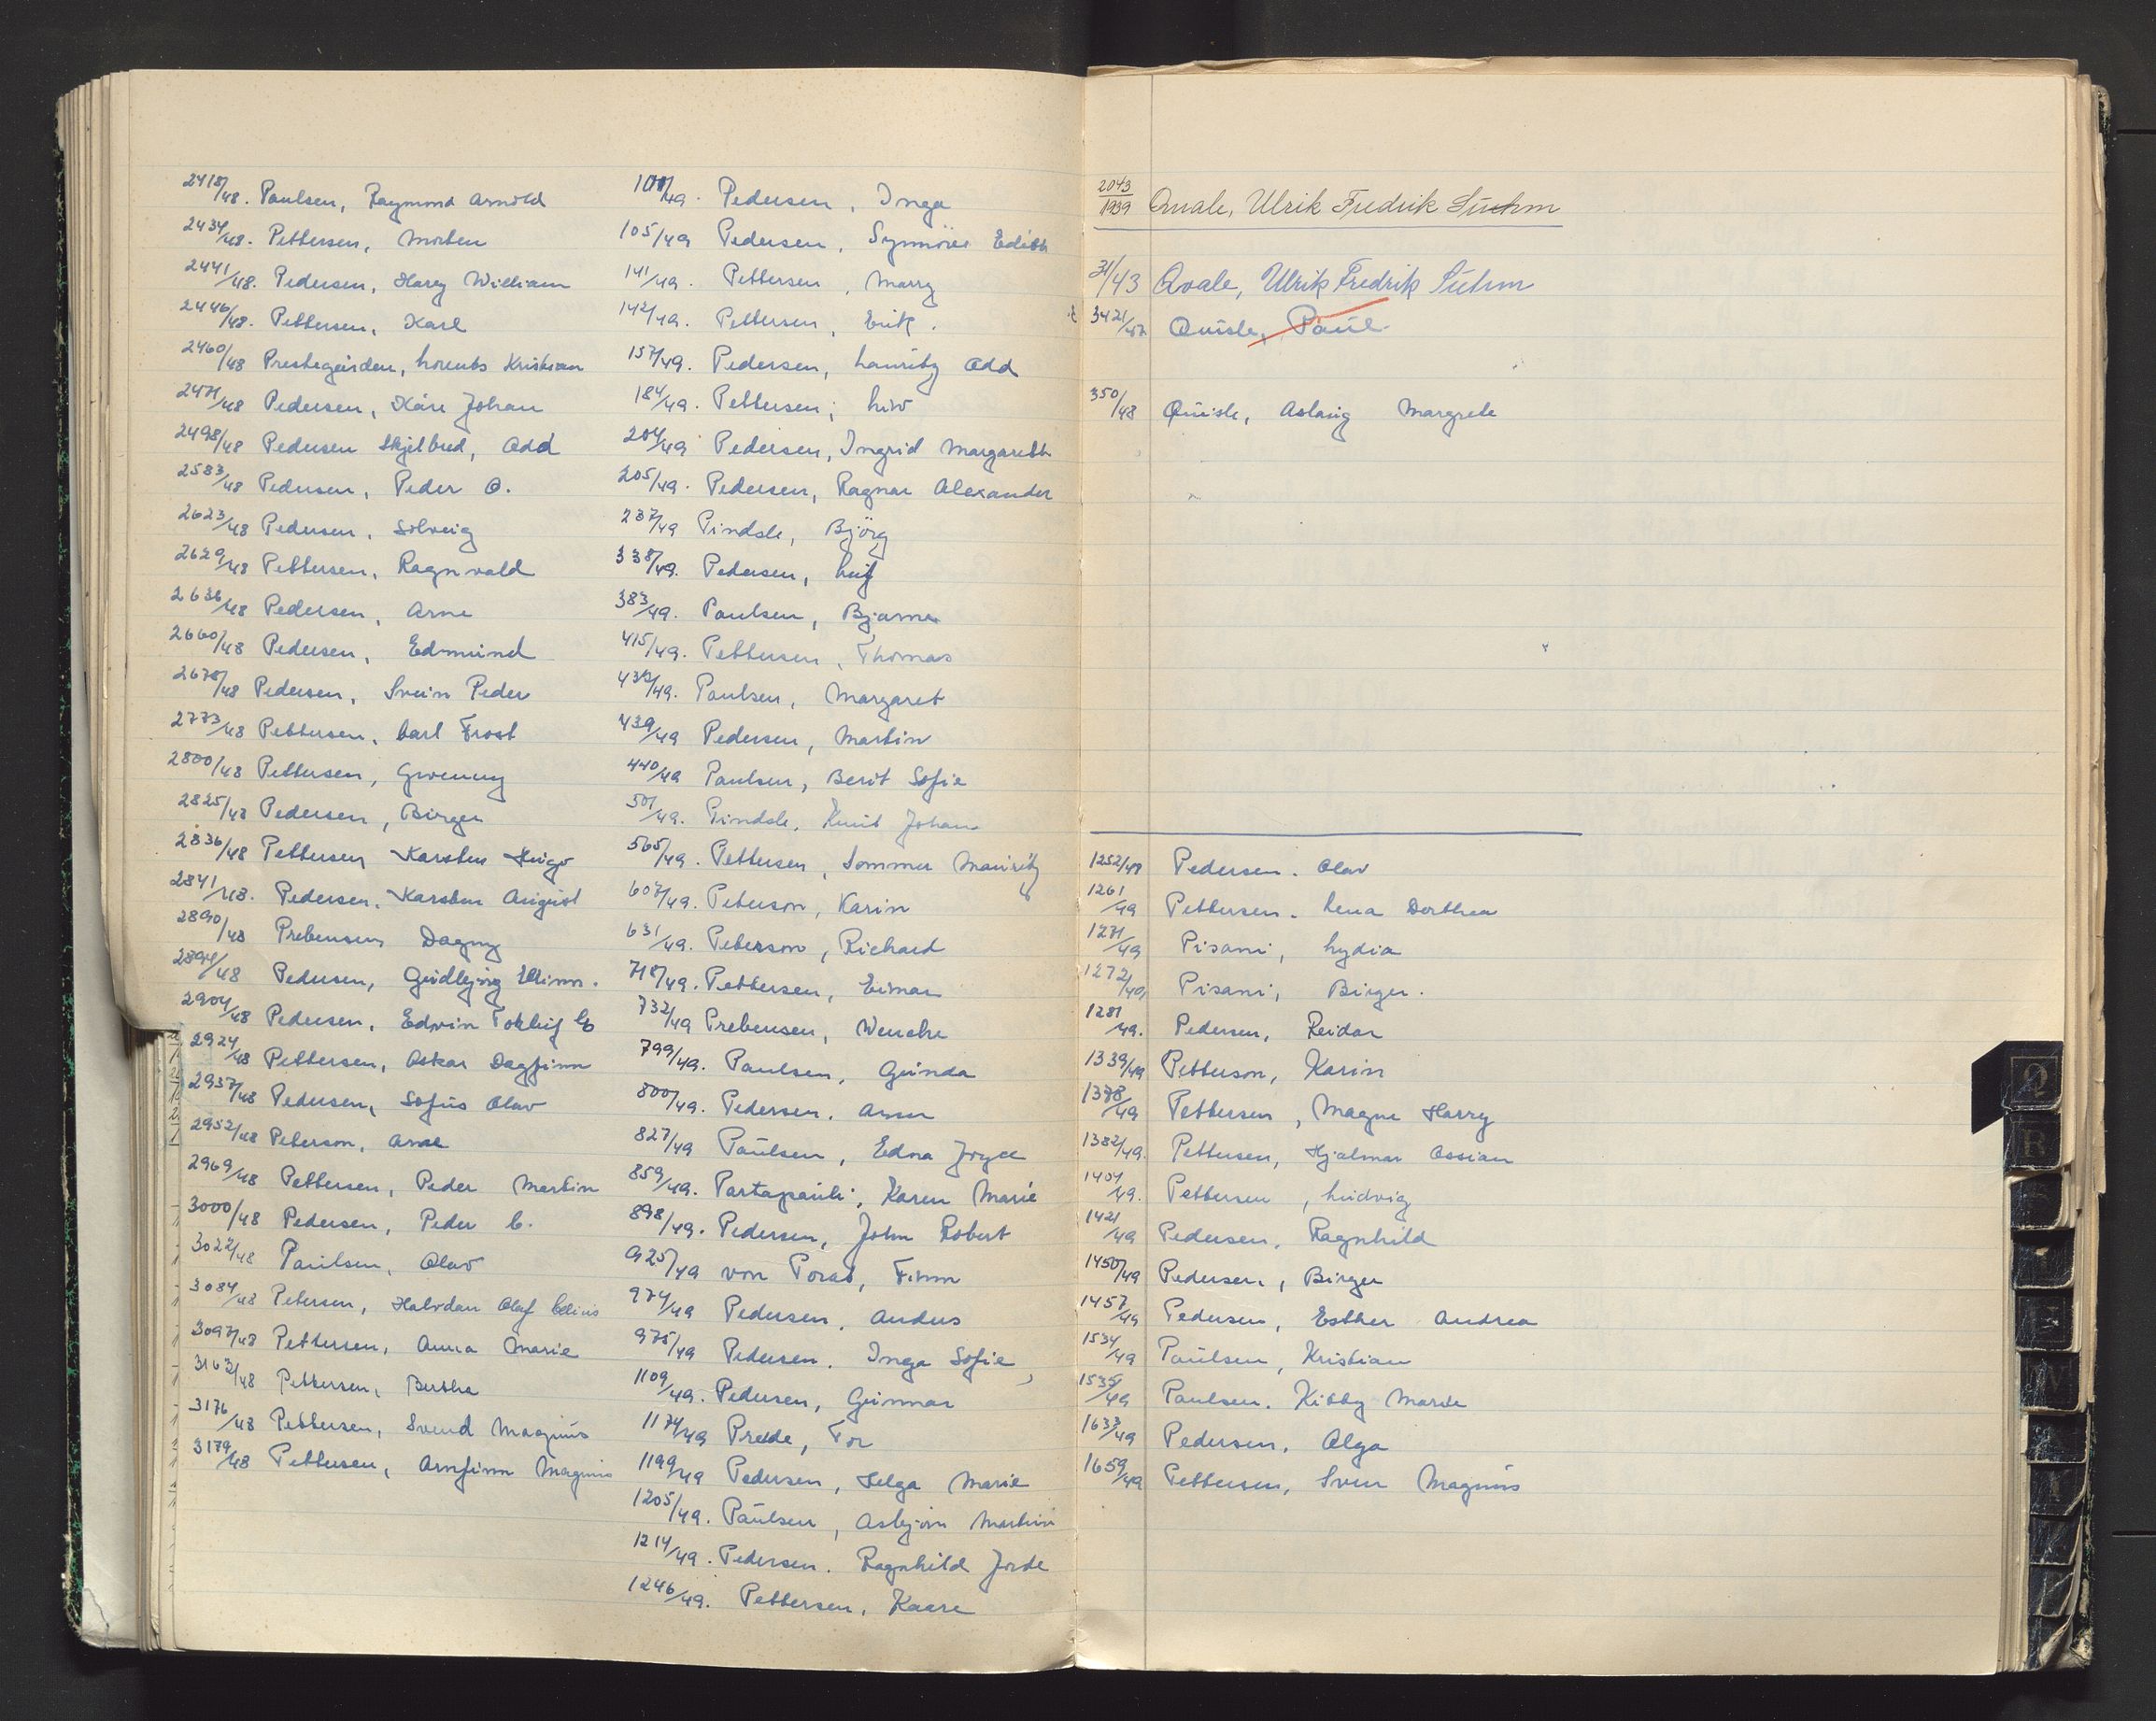 2418/48. Paulsen, Raymond Arnold
2434/48. Pettersen, Morten
2441/48. Pedersen, Harry William
2446/48. Pettersen, Karl
2460/48 Prestegården, Lorents Kristian
2471/48 Pedersen, Kåre Johan
2498/48 Pedersen Skjelbred, Odd
2583/48 Pedersen, Peder O.
2623/48 Pedersen, Solveig
2629/48 Pettersen, Ragnvald
2636/48 Pedersen, Arne
2660/48 Pedersen, Edmund
2678/48 Pedersen, Svein Peder
2773/48 Pettersen, Carl Frost
2800/48 Pettersen, Gwenny
2825/48 Pedersen, Birger
2836/48 Pettersen, Karsten Hugo
2841/48. Pedersen, Karsten August
2890/48 Prebensen, Dagny
2894/48 Pedersen, Gudbjørg
2904/48 Pedersen, Edvin
2924/48 Pettersen, Oskar Dagfinn
2937/48 Pedersen, Sofus Olav
2952/48 Peterson, Arne
2969/48 Pettersen, Peder Martin
3000/48 Pedersen, Peder C.
3022/48 Paulsen, Olav
3084/48 Petersen, Halvdan Olaf
3097/48 Pettersen, Anna Marie
3163/48 Pettersen, Berthe
3176/48 Pettersen, Svend Magnus
3179/48 Pettersen, Arnfinn Magnus
101/49. Pedersen, Inga
105/49 Pedersen, Synnöve Edith
141/49. Pettersen, Marry
142/49. Pettersen, Erik.
157/49. Pedersen, Lauritz Odd
184/49. Pettersen, Liv
204/49 Pedersen, Ingrid Margareth
205/49. Pedersen, Ragnar Alexander
237/49 Pindsle, Björg
338/49. Pedersen, Leif
383/49. Paulsen, Bjarne
415/49. Pettersen, Thomas
436/49. Paulsen, Margaret
439/49 Pedersen, Martin
440/49 Paulsen, Berit Sofie
501/49. Pindsle, Knut Johan
565/49. Pettersen, Sommer Mauritz
607/49. Peterson, Karin
631/49. Peterson, Richard
718/49. Pettersen, Einar
732/49 Prebensen, Wenche
799/49. Paulsen, Gunda
800/49. Pedersen.
827/49 Paulsen, Edna Joyce
859/49. Partapauli, Karen Marie
898/49. Pedersen, John Robert
925/49 von Porat, Finn
974/49 Pedersen, Anders
975/49 Pedersen. Inga Sofie
1109/49. Pedersen, Gunnar
1174/49 Prede, Tor
1199/49 Pedersen, Helga Marie
1205/49. Paulsen, Asbjørn Martin
1214/49. Pedersen. Ragnhild Jorde
1246/49. Pettersen, Kaare
2043/1939 Qvale, Ulrik Fredrik Suhm
31/43 Qvale, Ulrik Fredrik Suhm
3421/47 Quisle, Paul
350/48 Quisle, Aslaug Margrete
1252/49 Pedersen. Olav
1261/49 Pettersen. Lena Dorthea
1271/49 Pisani, Lydia
1272/49 Pisani, Birger.
1281/49. Pedersen, Reidar
1339/49 Petterson, Karin
1378/49 Pettersen, Magne Harry
1382/49. Pettersen, Hjalmar Ossian
1404/49. Pettersen, Ludvig
1421/49 Pedersen. Ragnhild
1450/49 Pedersen, Birger
1457/49 Pedersen, Esther Andrea
1534/49 Paulsen, Kristian
1535/49 Paulsen. Kitty Marie
1633/49 Pedersen. Olga
1659/49 Pettersen, Sven Magnus
Q
R